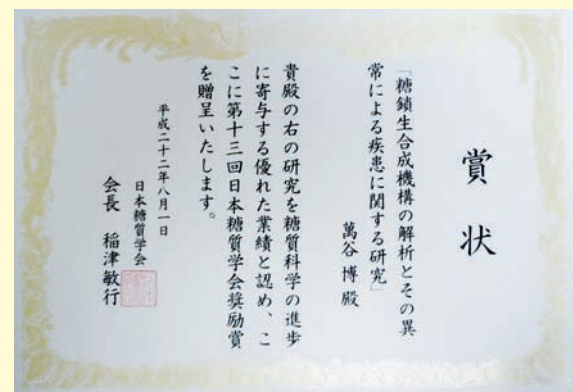 賞状
「糖鎖生合成機構の解析とその異
常による疾患に関する研究」
萬谷博殿
貴殿の右の研究を糖質科学の進歩
に寄与する優れた業績と認め、こ
こに第十三回日本糖質学会奨励賞
を贈呈いたします。
平成二十二年八月一日
日本糖質学会
会長 稲津敏行